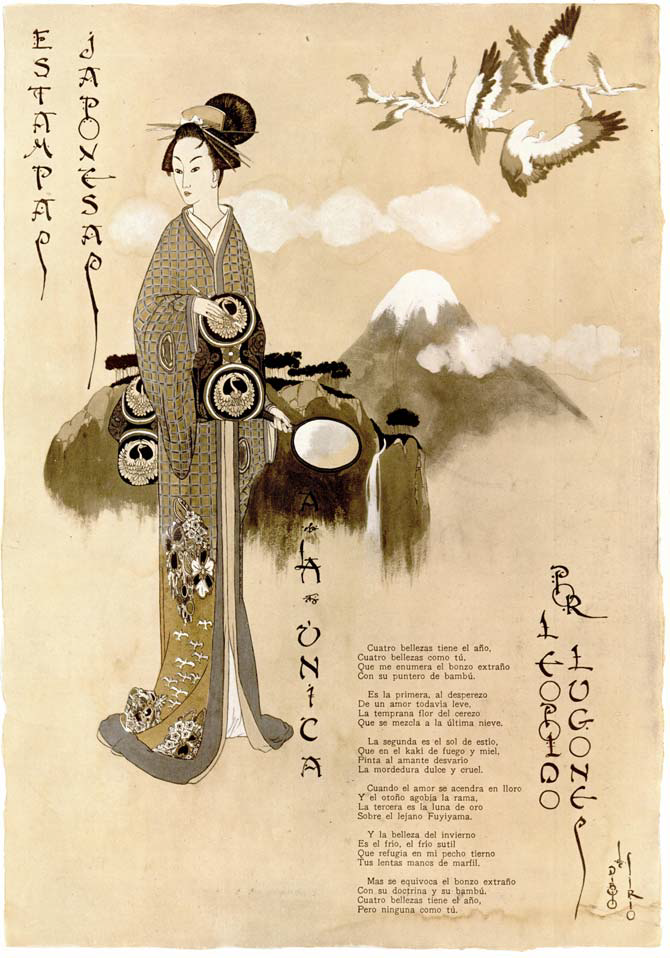 ESTAMPAS
JAPONESAS
A LA ÚNICA
POR
LEOPOLDO
LUGONES
Cuatro bellezas tiene el año,
Cuatro bellezas como tú,
Que me enumera el bonzo extraño
Con su puntero de bambú.
Es la primera, al desperezo
De un amor todavía leve,
La temprana flor del cerezo
Que se mezcla a la última nieve.
La segunda es el sol de estío,
Que en el kaki de fuego y miel,
Pinta al amante desvarío
La mordedura dulce y cruel.
Cuando el amor se acendra en lloro
Y el otoño agobia la rama,
La tercera es la luna de oro
Sobre el lejano Fuyiyama.
Y la belleza del invierno
Es el frío, el frío sutil
Que refugia en mi pecho tierno
Tus lentas manos de marfil.
Mas se equivoca el bonzo extraño
Con su doctrina y su bambú.
Cuatro bellezas tiene el año,
Pero ninguna como tú.
SIRIO